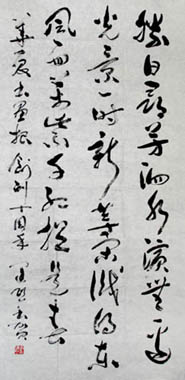 勝日尋芳泗水濱無邊
光景一時新等閑識得東
風面萬紫千紅總是春
書畫報創刊十周年